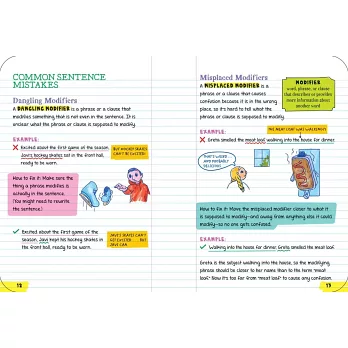 COMMON SENTENCE
MISTAKES
Dangling Modifiers
A DANGLING MODIFIER is a phrase or a clause that
modifies something that is not even in the sentence. It is
unclear what the phrase or clause is supposed to modify.
EXAMPLE:
Excited about the first game of the season,
Jay's hockey skates sat in the front hall,
ready to be worn.
BUT HOCKEY SKATES
CAN'T BE EXCITED!
How to fix it: Make sure the
thing a phrase modifies is
actually in the sentence.
(You might need to rewrite
the sentence.)
Excited about the first game of the
season, Jays kept his hockey skates
in the front hall, ready to be worn.
JAY'S SKATES CAN'T
GET EXCITED . . . BUT
JAYS CAN!
12
Misplaced Modifiers
A MISPLACED MODIFIER is a
phrase or a clause that causes
confusion because it is in the wrong
place, so it's hard to tell what the
phrase or clause is supposed to modify.
MODIFIER
word, phrase, or clause
that describes or provides
more information about
another word
EXAMPLE:
THE MEAT LOAF WAS WALKING?!
Greta smelled the meat loaf walking into the house for dinner.
THAT'S WEIRD
AND PROBABLY
DELICIOUS!
How to fix it: Move the misplaced modifier closer to what it
is supposed to modify—and away from anything else it could
modify—so no one gets confused.
EXAMPLE:
Walking into the house for dinner, Greta smelled the meat loaf.
Greta is the subject walking into the house, so the modifying
phrase should be closer to her name than to the term "meat
loaf." Now it's too far from "meat loaf" to cause any confusion.
13